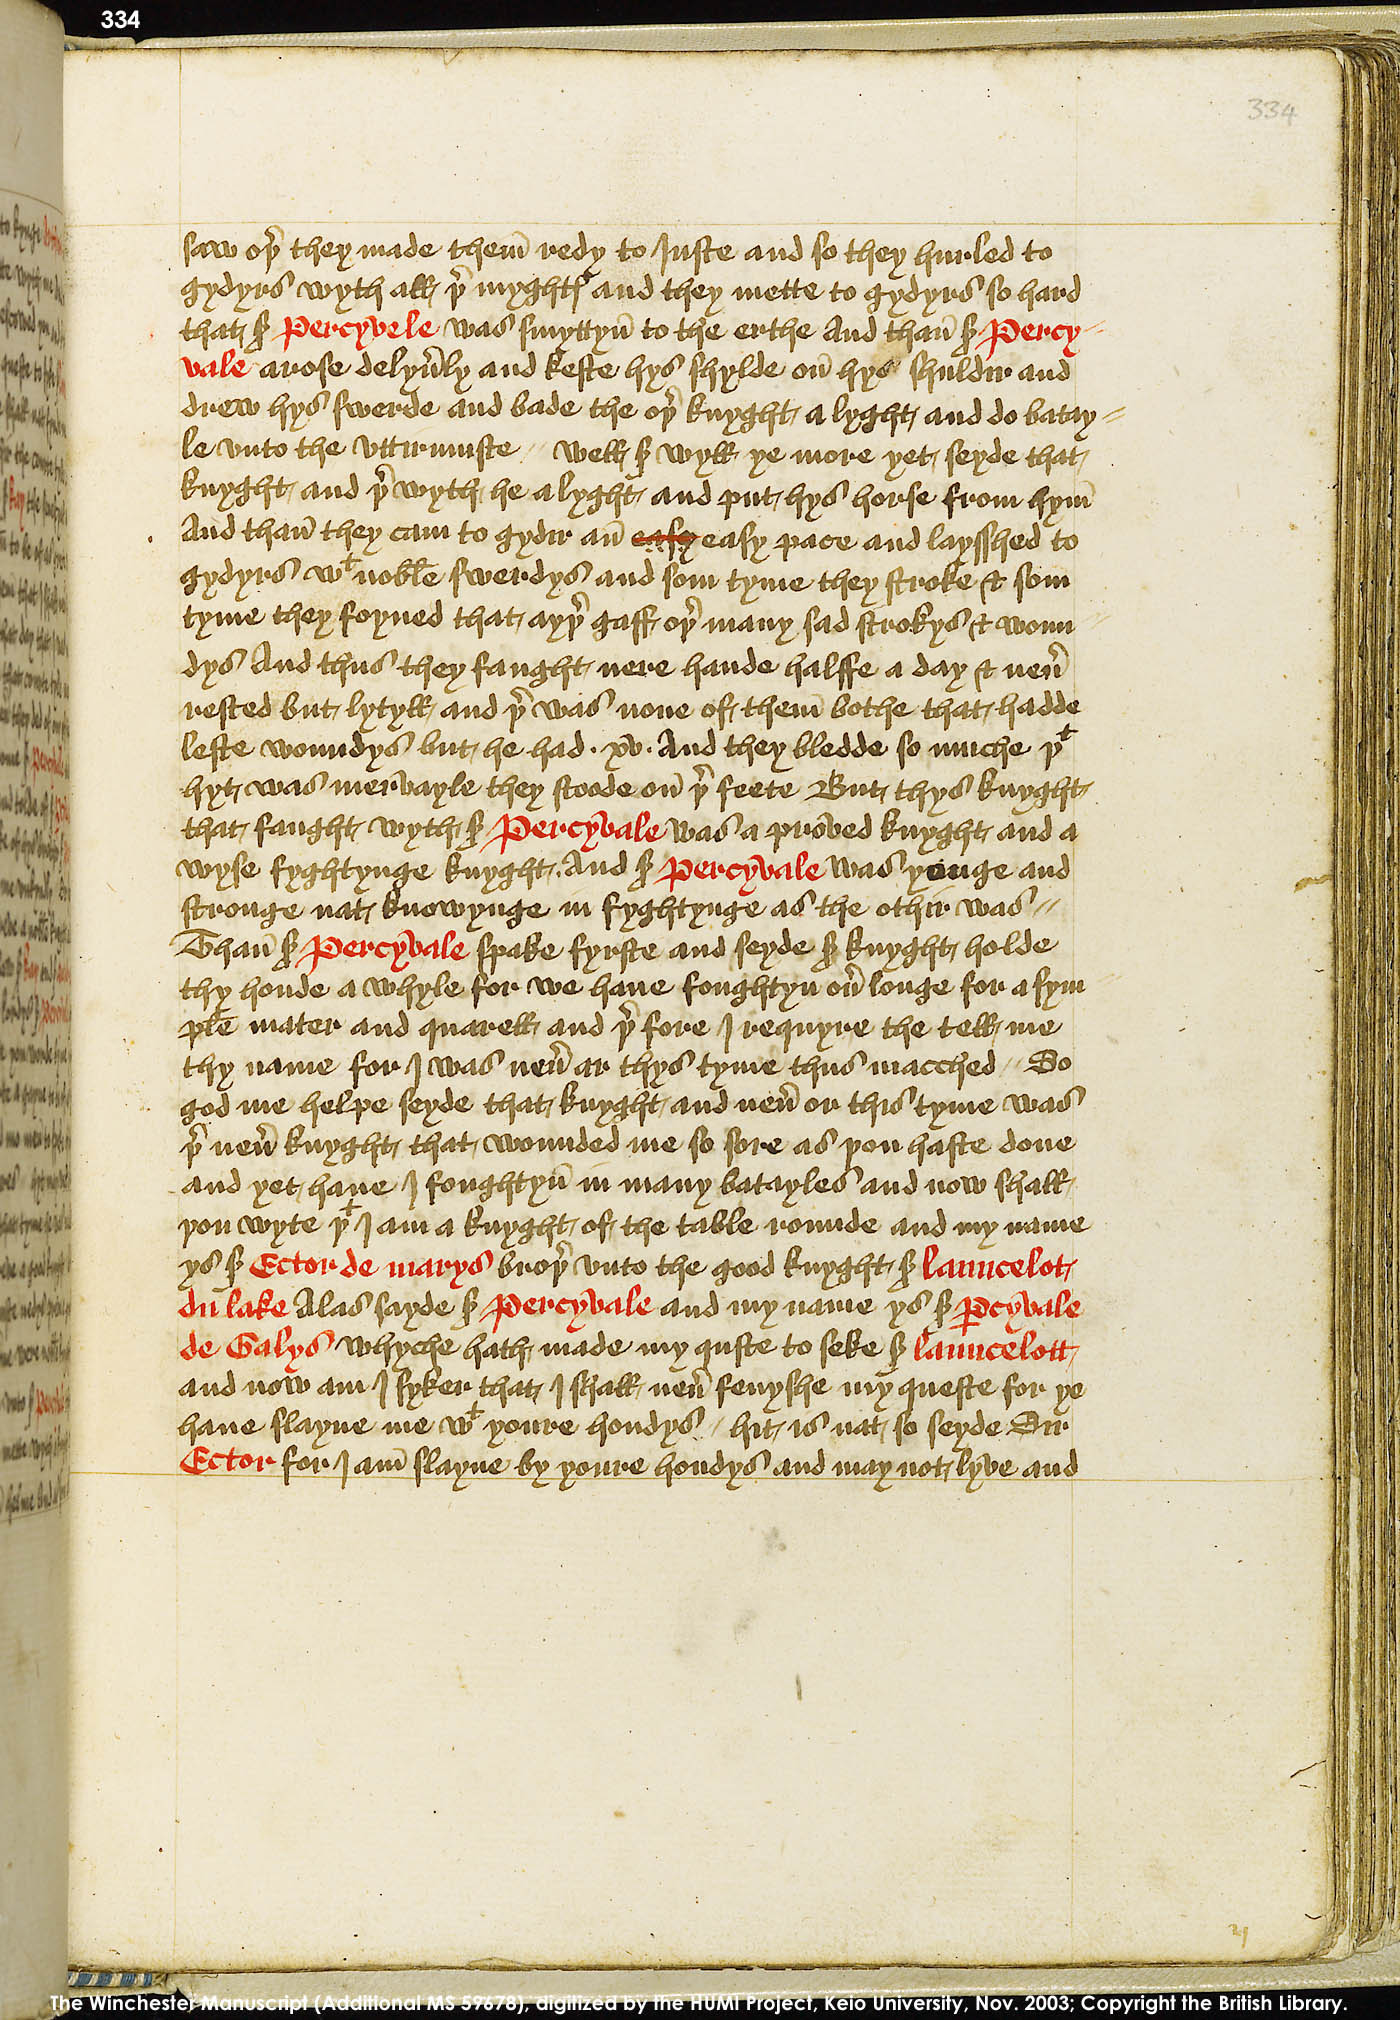 334
334
saw oþ͛ they made them̄ redy to Juste and so they hurled to
gydyrs wyth all þ͛ myghtꝭ and they mette to gydyrs so hard
that sͥ Percyvele was smyttyn̄ to the erthe And than̄ sͥ Percy-
vale arose delyu͛ly and keste hys shylde on̄ hys shuldir and
drew hys swerde and bade the oþ͛ knyght a lyght and do batay=
le vnto the vttirmuste // well sͥ wyll ye more yet seyde that
knyght and þ͛ wyth he a lyght and put hys horse from hym̄
And than̄ they cam to gydir an̄ easy easy pace and laysshed to
gydyrs wᵗ noble swerdys and som tyme they stroke & som
tyme they foyned that ayþ͛ gaff oþ͛ many sad strokys & woun
dys And thus they faught nere hande halffe a day & neu͛
rested but lytyll and þ͛ was none of them̄ bothe that hadde
leste woundys but he had · xv · And they bledde so muche þᵗ
hyt was mervayle they stoode on̄ þ͛ feete But thys knyght
that faught wyth sͥ Percyvale was a proved knyght and a
wyse fyghtynge knyght . And sͥ Percyvale was yonge and
stronge nat knowynge in fyghtynge as the othir was //
Than̄ sͥ Percyvale spake fyrste and seyde sͥ knyght holde
thy honde a whyle for we haue foughtyn ou͛ longe for a sym
ple mater and quarell and þ͛ fore I requyre the tell me
thy name for I was neu͛ ar thys tyme thus macched // So
god me helpe seyde that knyght and neu͛ or this tyme was
þ͛ neu͛ knyght that wounded me so sore as þou haste done
and yet haue I foughtyn̄ in many batayles and now shall
þou wyte þᵗ I am a knyght of the table rounde and my name
ys sͥ Ector de marys broþ͛ vnto the good knyght sͥ launcelot
du lake Alas sayde sͥ Percyvale and my name ys sͥ ꝑcyvale
de Galys whyche hath made my quste to seke sͥ launcelott
and now am I syker that I shall neu͛ fenyshe my queste for ye
haue slayne me wᵗ youre hondys // hit is nat so seyde Sir
Ector for I am̄ slayne by youre hondys and may not lyve and
The Winchester Manuscript (Additional MS 59678), digitized by the HUMI Project, Keio University, Nov. 2003; Copyright the British Library.